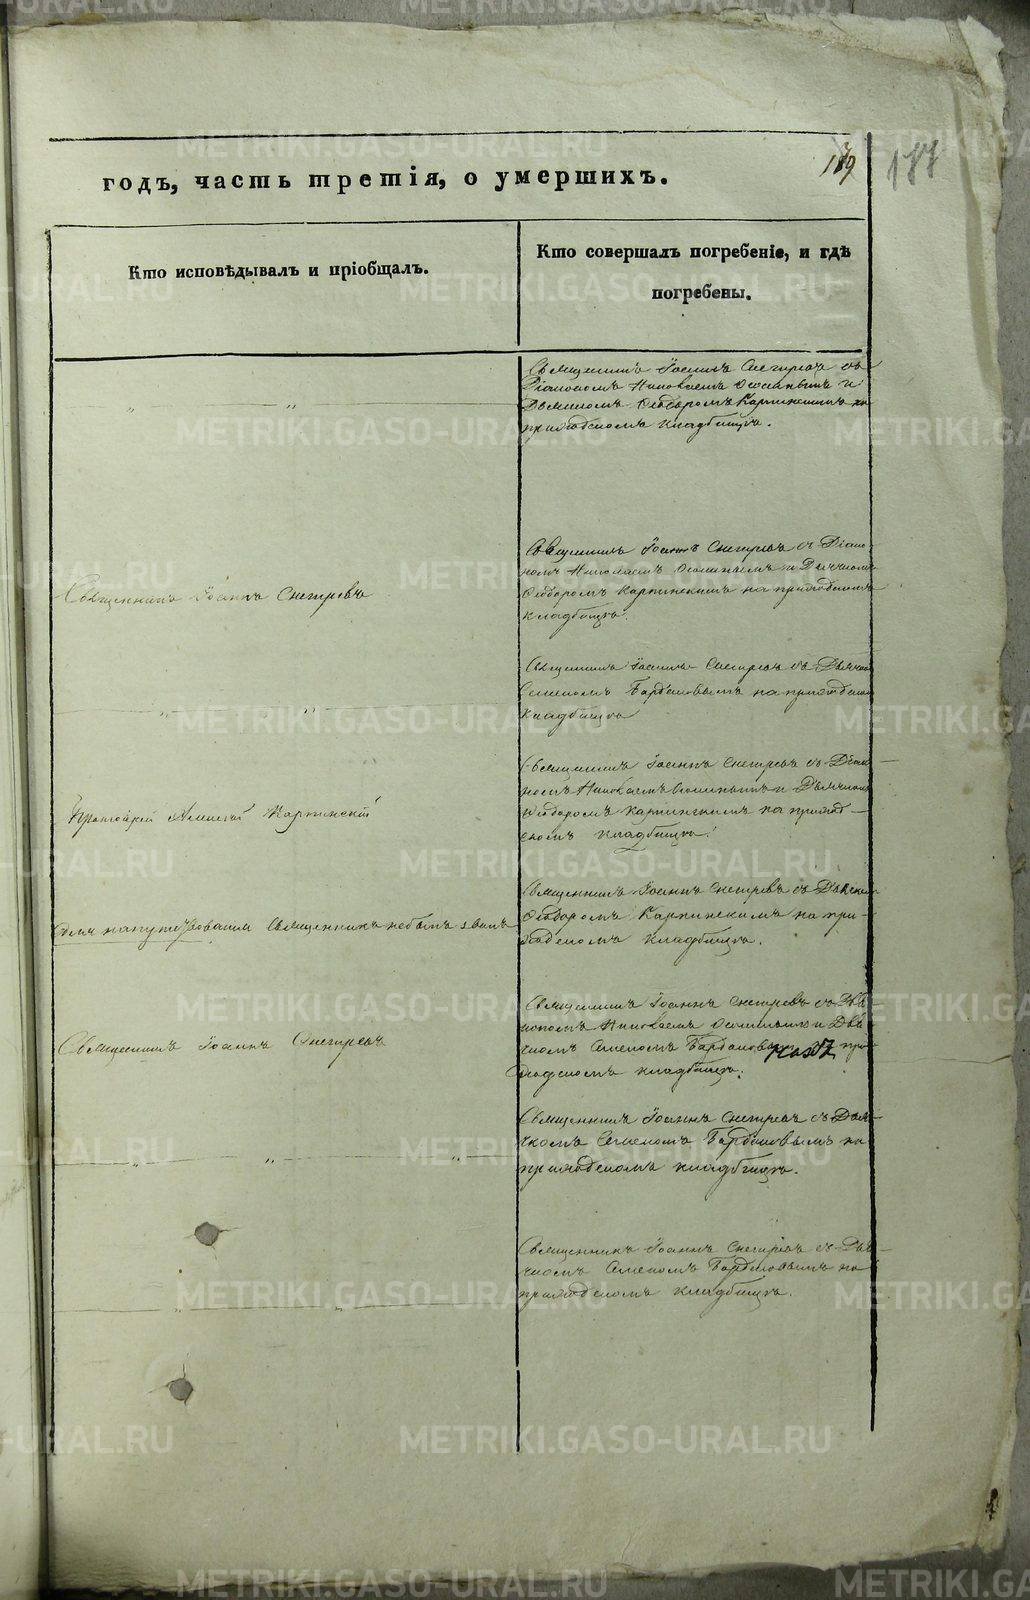 METRIKI.GASO-URAL.RU
годъ, часть третія, о умершихъ.
187
Кто исповѣдывалъ и пріобщалъ.
Кто совершалъ погребеніе, и гдѣ
погребены.
Священникъ Іоаннъ Снегиревъ съ
Діакономъ Николаемъ и
Дьячкомъ Ѳеодоромъ Карпинскимъ на
приходскомъ кладбищѣ.
Священникъ Іоаннъ Снегиревъ
Священникъ Іоаннъ Снегиревъ съ Діако-
номъ Николаемъ и Дьячкомъ
Ѳеодоромъ Карпинскимъ на приходскомъ
кладбищѣ.
„ „
Священникъ Іоаннъ Снегиревъ съ Дьячко
Семеномъ на приходском
кладбищѣ
Протоіерей Алексій Карпинскій
Священникъ Іоаннъ Снегиревъ съ Діако-
номъ Николаемъ и Дьячкомъ
Ѳеодоромъ Карпинскимъ на приход-
скомъ кладбищѣ.
Для напутствованія Священникъ небылъ званъ
Священникъ Іоаннъ Снегиревъ съ
Ѳеодоромъ Карпинскимъ на при-
ходскомъ кладбищѣ.
Священникъ Іоаннъ Снегиревъ
Священникъ Іоаннъ Снегиревъ съ Діа
кономъ Николаемъ и Дья
чкомъ Семеномъ при
ходскомъ кладбищѣ.
„ „ „
Священникъ Іоаннъ Снегиревъ съ Дья-
чкомъ Семеномъ на
приходскомъ кладбищѣ.
„ „
Священникъ Іоаннъ Снегиревъ съ Дья-
чкомъ Семеномъ на
приходскомъ кладбищѣ.